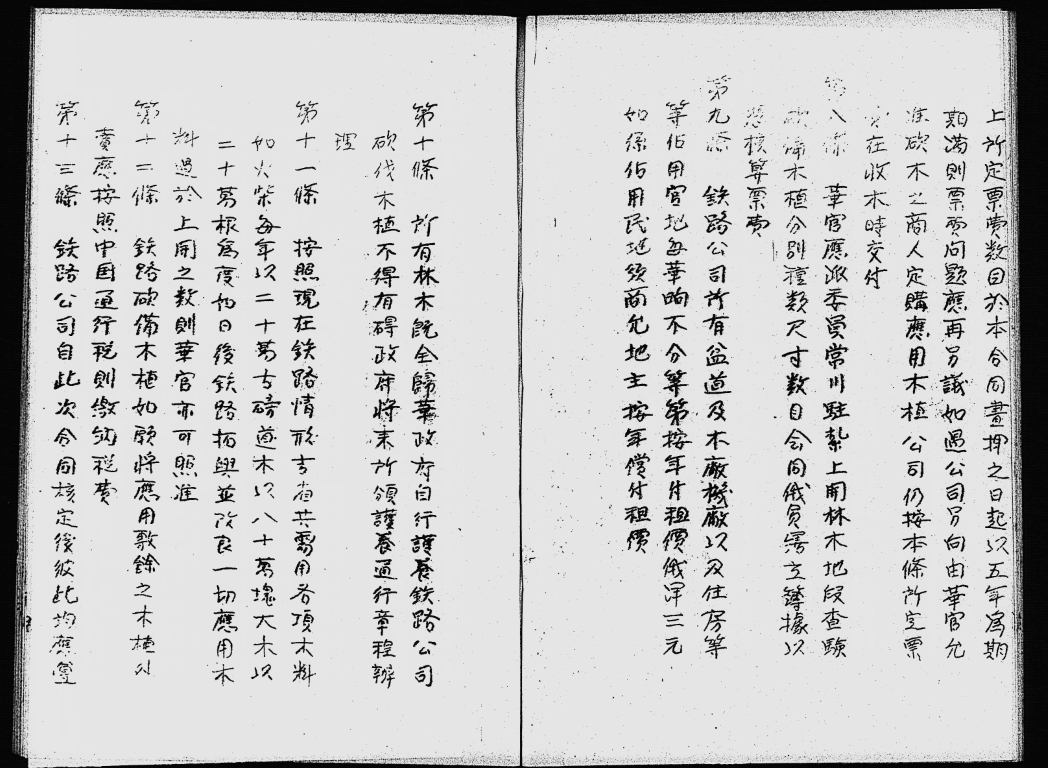 上所定票費数目於本合同畫押之日起以五年為期
期滿則票費问題應再另議如遇公司另向由華官允
准砍木之商人定購應用木植公司仍按本條所定票
在收木時交付
第八條　華官應派委員常川駐紮上開林木地段查驗
砍伐木植分別種数尺寸数目会同俄員另立簿據以
憑核算票費
第九條　鉄路公司所有岔道及木廠機廠以及住房等
等佔用官地每華晌不分等第按年付租價俄洋三元
如係佔用民地須商允地主按年償付租價
第十條　所有林木既全歸華政府自行護養鉄路公司
砍伐木植不得有碍政府將来所頒護養通行章程辦
理
第十一條　按照現在鉄路情形吉省共需用各項木料
如火柴每年以二十萬古磅道木以八十萬塊大木以
二十萬根為度如日後鉄路拓興並改良一切應用木
料過於上開之数則華官亦可照准
第十二條　鉄路砍備木植如願將應用敷餘之木植外
賣應按照中国通行税則繳納税費
第十三條　鉄路公司自此次合同核定後彼此均應遵